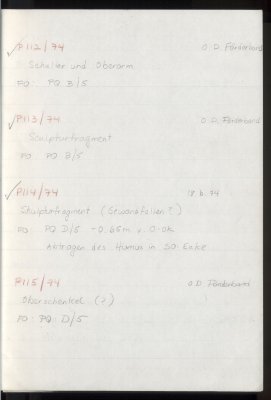 P112/74 O.D. Förderband
Schulter und Oberarm
FO: PQ B/5
P113/74 O.D. Förderband
Skulpturfragment
FO: PQ B/5
P114/74 18.6.74
Skulpturfragment (Gewandfalten?)
FO: PQ D/5 -0.65m v. O.OK
Abtragen des Humus in SO-Ecke
P115/74 O.D. Förderband
Oberschenkel (?)
FO: PQ D/5